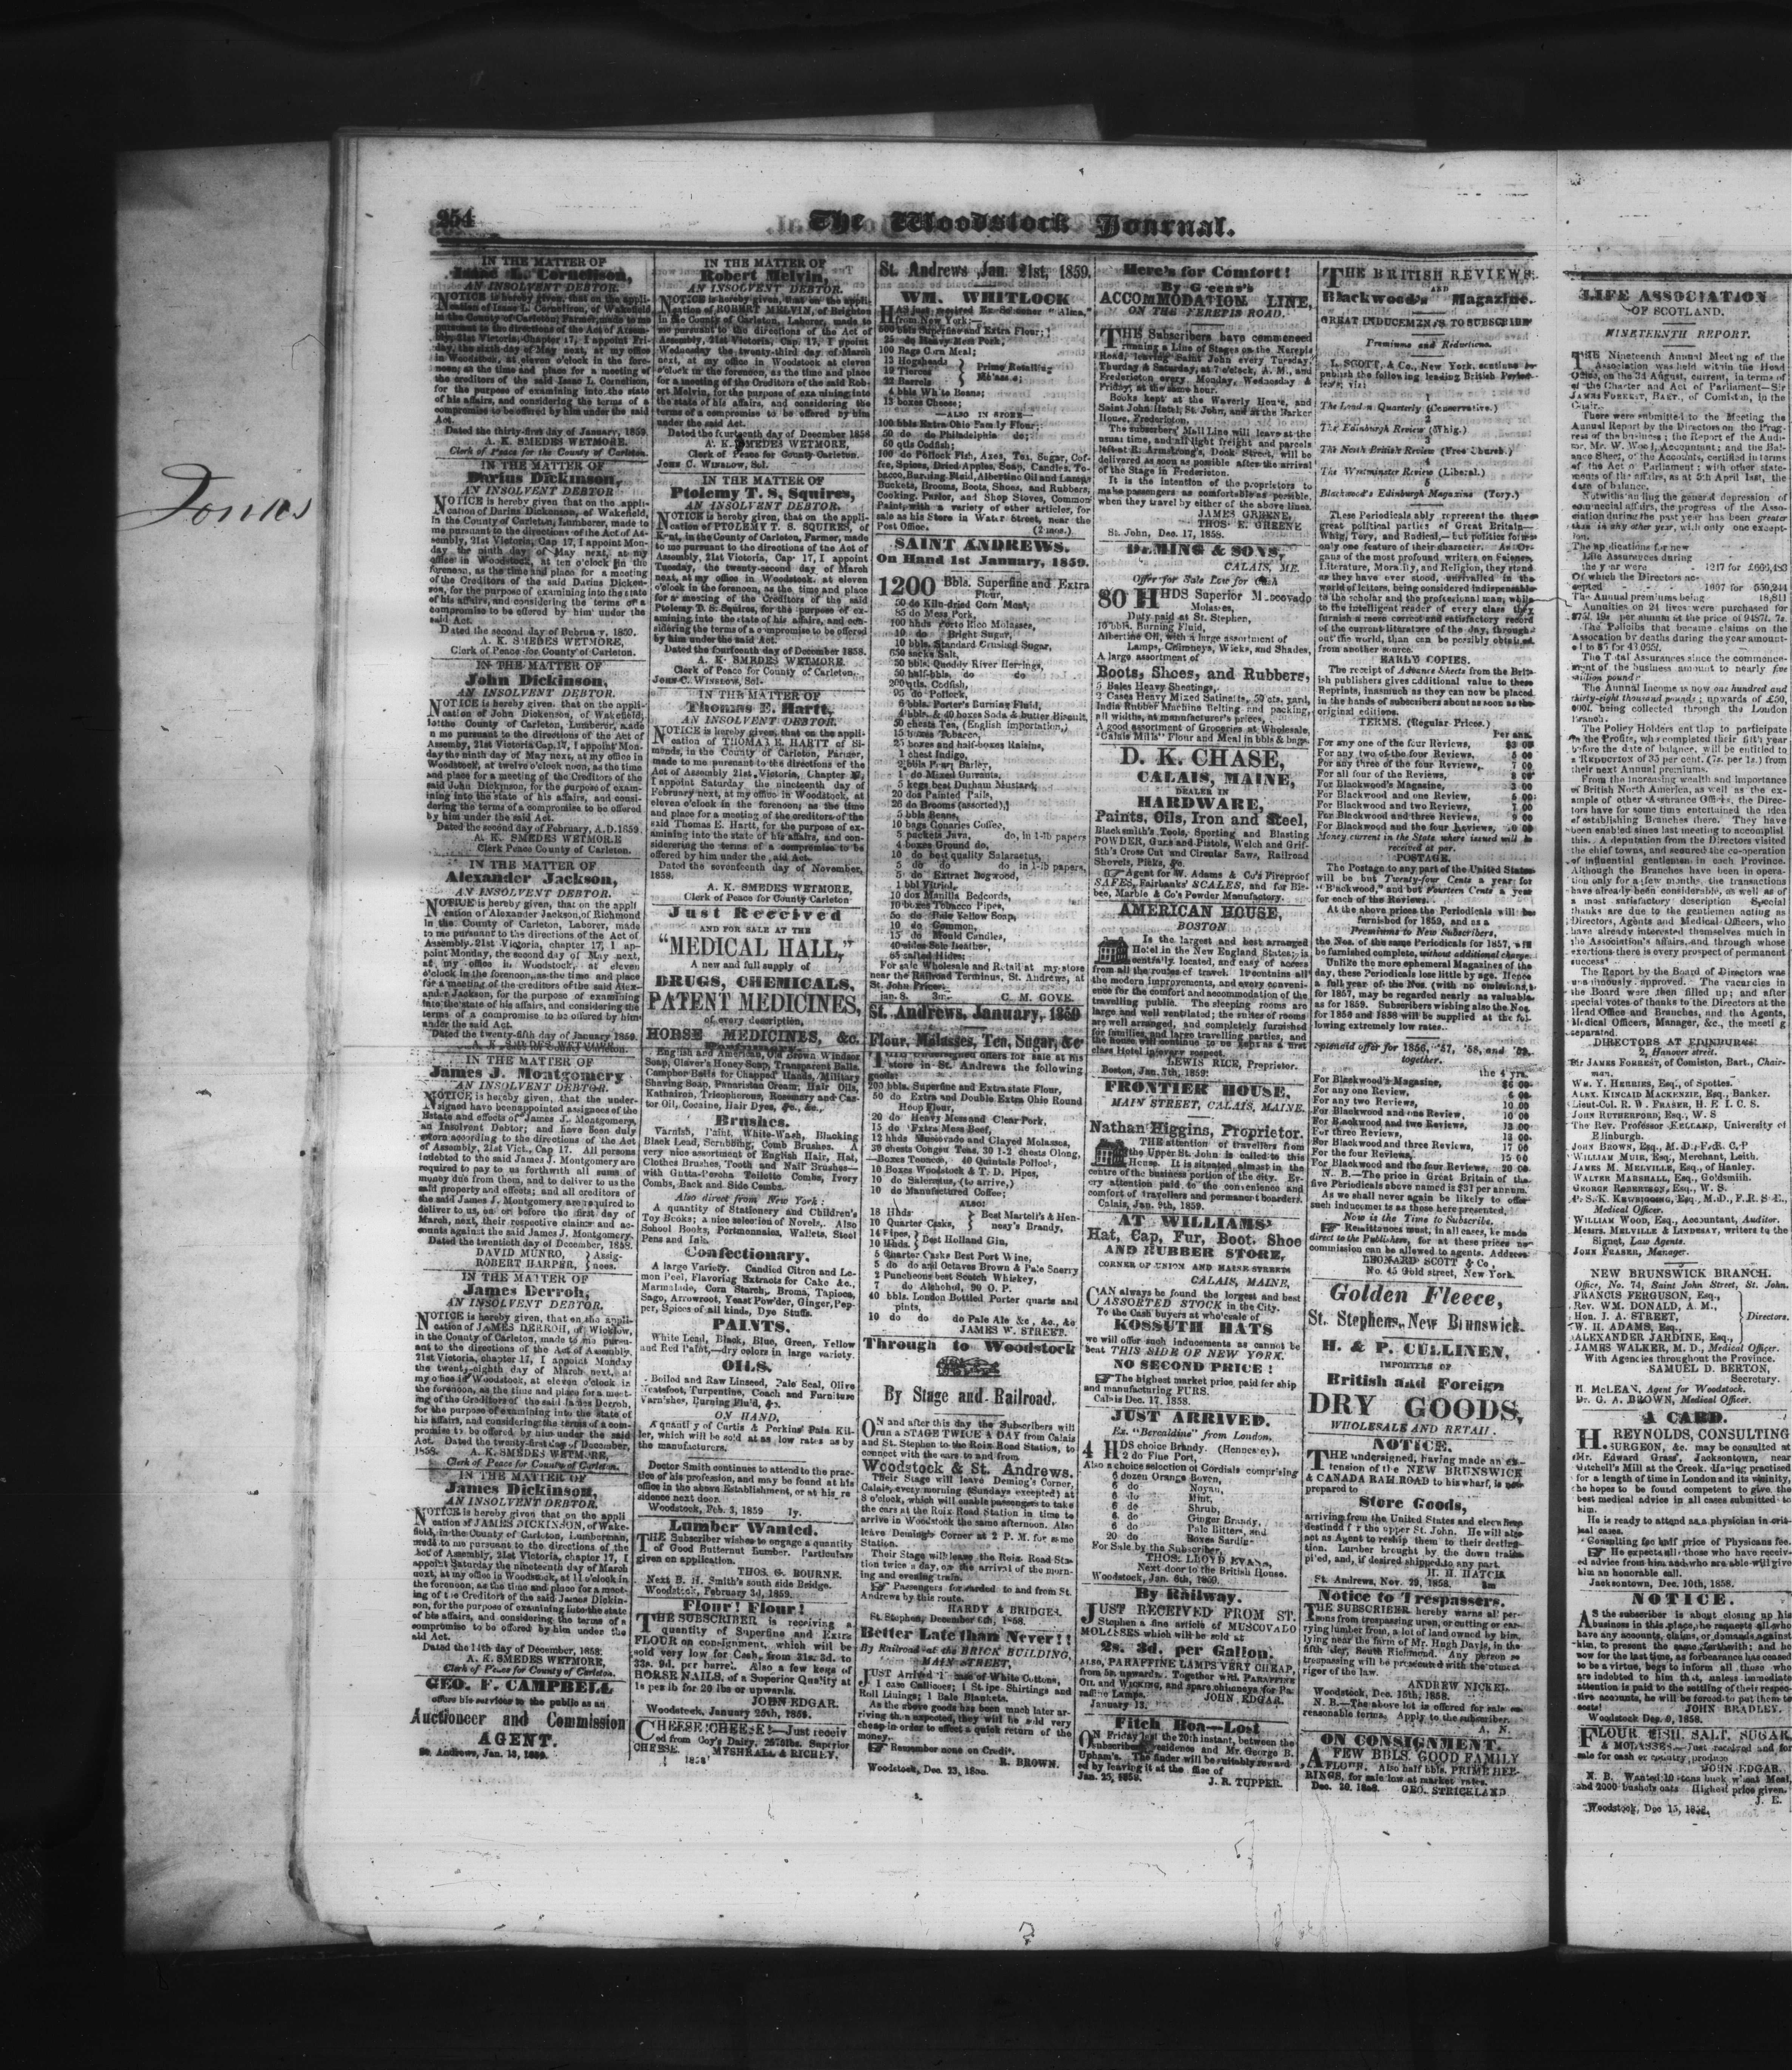 254
The Woodstock Journal.
IN THE MATTER OF
Isaac L. Cornelison,
AN INSOLVENT DEBTOR.
NOTICE is hereby given, that on the appli-
cation of Isaac L. Cornelison, of Wakefield
in the County of Carleton, Farmer, made to me
pursuant to the directions of the Act of Assem-
bly, 21st Victoria, Chapter 17, I appoint Fri-
day, the sixth day of May next, at my office
in Woodstock, at eleven o'clock in the fore-
noon, as the time and place for a meeting of
the creditors of the said Isaac L. Cornelison,
for the purpose of examining into the state
of his affairs, and considering the terms of a
compromise to be offered by him under the said
Act.
Dated the thirty-first day of January, 1859.
A. K. SMEDES WETMORE.
Clerk of Peace for the County of Carleton.
IN THE MATTER OF
Darius Dickinson,
AN INSOLVENT DEBTOR
NOTICE is hereby given that on the appli-
cation of Darius Dickenson, of Wakefield,
in the County of Carleton, Lumberer, made to
me pursuant to the directions of the Act of As-
sembly, 21st Victoria, Cap 17, I appoint Mon-
day the ninth day of May next, at my
office in Woodstock, at ten o'clock in the
forenoon, as the time and place for a meeting
of the Creditors of the said Darius Dicken-
son, for the purpose of examining into the state
of his affairs, and considering the terms of a
compromise to be offered by him under the
said Act.
Dated the second day of February, 1859.
A. K. SMEDES WETMORE,
Clerk of Peace for County of Carleton.
IN THE MATTER OF
John Dickinson,
AN INSOLVENT DEBTOR.
NOTICE is hereby given that on the appli-
cation of John Dickenson, of Wakefield,
in the County of Carleton, Lumberer, made
to me pursuant to the directions of the Act of
Assembly, 21st Victoria Cap. 17, I appoint Mon-
day the ninth day of May next, at my office in
Woodstock, at twelve o'clock noon, as the time
and place for a meeting of the Creditors of the
said John Dickinson, for the purpose of exam-
ining into the state of his affairs, and consi-
dering the terms of a compromise to be offered
by him under the said Act.
Dated the second day of February, A.D. 1859.
A. K. SMEDES WETMORE
Clerk Peace County of Carleton.
IN THE MATTER OF
Alexander Jackson,
AN INSOLVENT DEBTOR.
NOTICE is hereby given, that on the appli
cation of Alexander Jackson, of Richmond
in the County of Carleton, Laborer, made
to me pursuant to the directions of the Act of
Assembly 21st Victoria, chapter 17, I ap-
point Monday, the second day of May next,
at my office in Woodstock, at eleven
o'clock in the forenoon, as the time and place
for a meeting of the creditors of the said Alex-
ander Jackson, for the purpose of examining
into the state of his affairs, and considering the
terms of a compromise to be offered by him
under the said Act.
Dated the twenty-fifth day of January 1859.
IN THE MATTER OF
James J. Montgomery
AN INSOLVENT DEBTOR.
NOTICE is hereby given, that the under-
signed have been appointed assignees of the
Estate and effects of James J. Montgomery,
an Insolvent Debtor; and have been duly
sworn according to the directions of the Act
of Assembly, 21st Vict., Cap 17. All persons
indebted to the said James J. Montgomery are
required to pay to us forthwith all sums of
money due from them, and to deliver to us the
said property and effects; and all creditors of
the said James J. Montgomery are required to
deliver to us, on or before the first day of
March, next, their respective claims and ac-
counts against the said James J. Montgomery.
Dated the twentieth day of December, 1858.
DAVID MUNRO, } Assig-
ROBERT HARPER, } nees.
IN THE MATTER OF
James Derroh,
AN INSOLVENT DEBTOR.
NOTICE is hereby given, that on the appli-
cation of JAMES DERROH, of Wicklow,
in the County of Carleton, made to me pursu-
ant to the directions of the Act of Assembly,
21st Victoria, chapter 17, I appoint Monday
the twenty-eighth day of March next, at
my office in Woodstock, at eleven o'clock in
the forenoon, as the time and place for a meet-
ing of the Creditors of the said James Derroh,
for the purpose of examining into the state of
his affairs, and considering the terms of a com-
promise to be offered by him under the said
Act. Dated the twenty-first day of December,
1858. A. K. SMEDES WETMORE,
Clerk of Peace for County of Carleton.
IN THE MATTER OF
James Dickinson,
AN INSOLVENT DEBTOR.
NOTICE is hereby given that on the appli
cation of JAMES DICKINSON, of Wake-
field, in the County of Carleton, Lumberman,
made to me pursuant to the directions of the
Act of Assembly, 21st Victoria, chapter 17, I
appoint Saturday the nineteenth day of March
next, at my office in Woodstock, at 11 o'clock in
the forenoon, as the time and place for a meet-
ing of the Creditors of the said James Dickin-
son, for the purpose of examining into the state
of his affairs, and considering the terms of a
compromise to be offered by him under the
said Act.
Dated the 14th day of December, 1858.
A. K. SMEDES WETMORE,
Clerk of Peace for County of Carleton.
GEO. F. CAMPBELL
offers his services to the public as an
Auctioneer and Commission
AGENT.
St. Andrews, Jan. 13, 1859.
IN THE MATTER OF
Robert Melvin,
AN INSOLVENT DEBTOR.
NOTICE is hereby given, that on the appli-
cation of ROBERT MELVIN, of Brighton
in the County of Carleton, Laborer, made to
me pursuant to the directions of the Act of
Assembly, 21st Victoria, Cap. 17, I ppoint
Wednesday the twenty-third day of March
next, at my office in Woodstock at eleven
o'clock in the forenoon, as the time and place
for a meeting of the Creditors of the said Rob-
ert Melvin, for the purpose of examining into
the state of his affairs, and considering the
terms of a compromise to be offered by him
under the said Act.
Dated the fourteenth day of December 1858
A. K. SMEDES WETMORE,
Clerk of Peace for County Carleton.
JOHN C. WINSLOW, Sol.
IN THE MATTER OF
Ptolemy T. S. Squires,
AN INSOLVENT DEBTOR.
NOTICE is hereby given, that on the appli-
cation of PTOLEMY T. S. SQUIRES, of
Kent, in the County of Carleton, Farmer, made
to me pursuant to the directions of the Act of
Assembly, 21st Victoria, Cap. 17, I appoint
Tuesday, the twenty-second day of March
next, at my office in Woodstock, at eleven
o'clock in the forenoon, as the time and place
for a meeting of the Creditors of the said
Ptolemy T. S. Squires, for the purpose of ex-
amining into the state of his affairs, and con-
sidering the terms of a compromise to be offered
by him under the said Act.
Dated the fourteenth day of December 1858.
A. K. SMEDES WETMORE.
Clerk of Peace for County of Carleton.
JOHN C. WINSLOW, Sol.
IN THE MATTER OF
Thomas E. Hartt,
AN INSOLVENT DEBTOR.
NOTICE is hereby given, that on the appli-
cation of THOMAS E. HARTT of Si-
monds, in the County of Carleton, Farmer,
made to me pursuant to the directions of the
Act of Assembly 21st Victoria, Chapter 17,
I appoint Saturday the nineteenth day of
February next, at my office in Woodstock, at
eleven o'clock in the forenoon, as the time
and place for a meeting of the creditors of the
said Thomas E. Hartt, for the purpose of ex-
amining into the state of his affairs, and con-
sidering the terms of a compromise to be
offered by him under the said Act.
Dated the seventeenth day of November,
1858.
A. K. SMEDES WETMORE,
Clerk of Peace for County Carleton
Just Received
AND FOR SALE AT THE
"MEDICAL HALL,"
A new and full supply of
DRUGS, CHEMICALS,
PATENT MEDICINES,
of every description,
HORSE MEDICINES, &c.
English and American, Old Brown Windsor
Soap, Cleaver's Honey Soap, Transparent Balls,
Camphor Balls for Chapped Hands, Military
Shaving Soap, Panaristan Cream, Hair Oils,
Kathairon, Tricopherous, Rosemary and Cas-
tor Oil, Cocaine, Hair Dyes, &c., &c.,
Brushes.
Varnish, Paint, White-Wash, Blacking
Black Lead, Scrubbing, Comb Brushes. A
very nice assortment of English Hair, Hat,
Clothes Brushes, Tooth and Nail Brushes—
with Gutta-Percha Toilette Combs, Ivory
Combs, Back and Side Combs.
Also direct from New York:
A quantity of Stationery and Children's
Toy Books; a nice selection of Novels. Also
School Books, Portmonnaies, Wallets, Steel
Pens and Ink.
Confectionary.
A large Variety. Candied Citron and Le-
mon Peel, Flavoring Extracts for Cake &c.,
Marmalade, Corn Starch, Broma, Tapioca,
Sago, Arrowroot, Yeast Powder, Ginger, Pep-
per, Spices of all kinds, Dye Stuffs.
PAINTS.
White Lead, Black, Blue, Green, Yellow
and Red Paint,—dry colors in large variety.
OILS.
Boiled and Raw Linseed, Pale Seal, Olive
Neatsfoot, Turpentine, Coach and Furniture
Varnishes, Burning Fluid, &c.
ON HAND,
A quantity of Curtis & Perkins' Pain Kil-
ler, which will be sold at as low rates as by
the manufacturers.
Doctor Smith continues to attend to the prac-
tice of his profession, and may be found at his
office in the above Establishment, or at his re
sidence next door.
Woodstock, Feb. 3, 1859 1y.
Lumber Wanted.
THE Subscriber wishes to engage a quantity
of Good Butternut Lumber. Particulars
given on application.
THOS. G. BOURNE.
Next B. H. Smith's south side Bridge.
Woodstock, February 3d, 1859.
Flour! Flour!
THE SUBSCRIBER is receiving a
quantity of Superfine and Extra
FLOUR on consignment, which will be
sold very low for Cash, from 31s. 3d. to
33s. 9d. per barrel. Also a few kegs of
HORSE NAILS, of a Superior Quality at
1s per lb for 20 lbs or upwards.
JOHN EDGAR.
Woodstock, January 25th, 1859.
CHEESE! CHEESE!—Just receiv
ed from Coy's Dairy, Superior
CHEESE. MYSHRALL & RICHEY.
1858
St. Andrews Jan. 21st, 1859.
WM. WHITLOCK
HAS just received Ex Schooner "Alma,"
from New York:—
500 bbls Superfine and Extra Flour;
25 do Heavy Mess Pork,
100 Bags Corn Meal;
13 Hogsheads
19 Tierces } Prime Retailing
22 Barrels Molasses;
4 bbls White Beans;
13 boxes Cheese;
—ALSO IN STORE—
100 bbls Extra Ohio Family Flour;
50 do do Philadelphia do;
50 qtls Codfish;
100 do Pollock Fish, Axes, Tea, Sugar, Cof-
fee, Spices, Dried Apples, Soap, Candles, To-
bacco, Burning Fluid, Albertine Oil and Lamps
Buckets, Brooms, Boots, Shoes, and Rubbers,
Cooking, Parlor, and Shop Stoves, Common
Paint, with a variety of other articles, for
sale at his Store in Water Street, near the
Post Office. (2 mos.)
SAINT ANDREWS.
On Hand 1st January, 1859.
1200 Bbls. Superfine and Extra
Flour,
50 do Kiln-dried Corn Meal,
35 do Mess Pork,
100 hhds Porto Rico Molasses,
10 do Bright Sugar,
10 bbls. Standard Crushed Sugar,
650 sacks Salt,
50 bbls. Quoddy River Herrings,
50 half-bbls. do do
200 qtls. Codfish,
95 do Pollock,
6 bbls. Porter's Burning Fluid,
4 bbls. & 40 boxes Soda & butter Biscuit,
50 chests Tea, (English importation,)
15 boxes Tobacco,
25 boxes and half-boxes Raisins,
1 chest Indigo,
2 bbls Pearl Barley,
1 do Mixed Currants,
5 kegs best Durham Mustard,
20 doz Painted Pails,
26 do Brooms (assorted),
5 bbls Beans,
10 bags Canaries Coffee,
5 pockets Java, do, in 1-lb papers
4 boxes Ground do,
10 do best quality Salaraetus,
5 do do do in 1-lb papers,
5 do Extract Logwood,
1 bbl Vitriol,
10 doz Manilla Bedcords,
10 boxes Tobacco Pipes,
50 do Pale Yellow Soap,
10 do Common,
15 do Mould Candles,
40 sides Sole Leather,
65 salted Hides;
For sale Wholesale and Retail at my store
near the Railroad Terminus, St. Andrews, at
St. John Prices.
jan. 8. 3m. C. M. GOVE.
St. Andrews, January, 1859
Flour, Molasses, Tea, Sugar, &c
THE undersigned offers for sale at his
store in St. Andrews the following
goods:
200 bbls. Superfine and Extra state Flour,
50 do Extra and Double Extra Ohio Round
Hoop Flour,
20 do Heavy Mess and Clear Pork,
15 do Extra Mess Beef,
12 hhds Muscovado and Clayed Molasses,
30 chests Congou Teas, 30 1-2 chests Olong,
—Boxes Tobacco, 40 Quintals Pollock,
10 Boxes Woodstock & T. D. Pipes,
10 do Saleratus, (to arrive,)
10 do Manufactured Coffee;
ALSO:
18 Hhds } Best Martell's & Hen-
10 Quarter Casks, } nesy's Brandy,
14 Pipes, } Best Holland Gin,
10 Hhds. }
5 Quarter Casks Best Port Wine,
5 do do and Octaves Brown & Pale Sherry
2 Puncheons best Scotch Whiskey,
7 do Alchohol, 90 O. P.
40 bbls. London Bottled Porter quarts and
pints,
10 do do do Pale Ale &c., &c., &c
JAMES W. STREET.
Through to Woodstock
By Stage and Railroad.
ON and after this day the Subscribers will
run a STAGE TWICE A DAY from Calais
and St. Stephen to the Roix Road Station, to
connect with the cars to and from
Woodstock & St. Andrews.
Their Stage will leave Deming's Corner,
Calais, every morning (Sundays excepted) at
8 o'clock, which will enable passengers to take
the cars at the Roix Road Station in time to
arrive in Woodstock the same afternoon. Also
leave Deming's Corner at 2 P. M. for same
Station.
Their Stage will leave the Roix Road Sta-
tion twice a day, on the arrival of the morn-
ing and evening train.
Passengers forwarded to and from St.
Andrews by this route.
HARDY & BRIDGES.
St. Stephen, December 6th, 1858.
Better Late than Never!!
By Railroad at the BRICK BUILDING,
MAIN STREET,
JUST Arrived 1 case of White Cottons,
1 case Callicoes; 1 Stripe Shirtings and
Roll Linings; 1 Bale Blankets.
As the above goods has been much later ar-
riving than expected, they will be sold very
cheap in order to effect a quick return of the
money.
Remember none on Credit.
R. BROWN.
Woodstock, Dec. 23, 1858.
Here's for Comfort!
By Greene's
ACCOMMODATION LINE,
ON THE NEREPIS ROAD.
THE Subscribers have commenced
running a Line of Stages on the Nerepis
Road, leaving Saint John every Tuesday,
Thurday & Saturday, at 7 o'clock, A. M., and
Fredericton every Monday, Wednesday &
Friday, at the same hour.
Books kept at the Waverly House, and
Saint John Hotel, St. John, and at the Barker
House, Fredericton.
The subscribers' Mail Line will leave at the
usual time, and all light freight and parcels
left at R. Armstrong's, Dock Street, will be
delivered as soon as possible after the arrival
of the Stage in Fredericton.
It is the intention of the proprietors to
make passengers as comfortable as possible,
when they travel by either of the above lines.
JAMES GREENE,
THOS. E. GREENE
St. John, Dec. 17, 1858.
DEMING & SONS,
CALAIS, ME.
Offer for Sale Low for Cash
80 HHDS Superior Muscovado
Molasses,
Duty paid at St. Stephen,
10 bbls. Burning Fluid,
Albertine Oil, with a large assortment of
Lamps, Chimneys, Wicks, and Shades,
A large assortment of
Boots, Shoes, and Rubbers,
5 Bales Heavy Sheetings,
2 Cases Heavy Mixed Satinetts, 50 cts. yard,
India Rubber Machine Belting and packing,
all widths, at manufacturer's prices,
A good assortment of Groceries at Wholesale,
"Calais Mills" Flour and Meal in bbls & bags.
D. K. CHASE,
CALAIS, MAINE,
DEALER IN
HARDWARE,
Paints, Oils, Iron and Steel,
Blacksmith's Tools, Sporting and Blasting
POWDER, Guns and Pistols, Welch and Grif-
fith's Cross Cut and Circular Saws, Railroad
Shovels, Picks, &c.
Agent for W. Adams & Co's Fireproof
SAFES, Fairbanks' SCALES, and for Bis-
bee, Marble & Co's Powder Manufactory.
AMERICAN HOUSE,
BOSTON
Is the largest and best arranged
Hotel in the New England States; is
centrally located, and easy of access
from all the routes of travel. It contains all
the modern improvements, and every conveni-
ence for the comfort and accommodation of the
travelling public. The sleeping rooms are
large and well ventilated; the suites of rooms
are well arranged, and completely furnished
for families and large travelling parties, and
the house will continue to be kept as a first
class Hotel in every respect.
LEWIS RICE, Proprietor.
Boston, Jan. 7th, 1859.
FRONTIER HOUSE,
MAIN STREET, CALAIS, MAINE.
Nathan Higgins, Proprietor.
THE attention of travellers from
the Upper St. John is called to this
House. It is situated almost in the
centre of the business portion of the city. Ev-
ery attention paid to the convenience and
comfort of travellers and permanent boarders.
Calais, Jan. 9th, 1859.
AT WILLIAMS'
Hat, Cap, Fur, Boot, Shoe
AND RUBBER STORE,
CORNER OF UNION AND MAINE STREETS
CALAIS, MAINE,
CAN always be found the largest and best
ASSORTED STOCK in the City.
To the Cash buyers at wholesale of
KOSSUTH HATS
we will offer such inducements as cannot be
beat THIS SIDE OF NEW YORK.
NO SECOND PRICE!
The highest market price paid for ship
and manufacturing FURS.
Calais Dec. 17, 1858.
JUST ARRIVED.
Ex. "Beroaldine" from London.
4 HDS choice Brandy. (Hennesey),
2 do Fine Port,
Also a choice selection of Cordials comprising
6 dozen Orange Boven,
6 do Noyau,
6 do Mint,
6 do Shrub,
6 do Ginger Brandy,
6 do Pale Bitters, and
20 do Boxes Sardin
For Sale by the Subscriber,
THOS. LLOYD EVANS,
Next door to the British House.
Woodstock, Jan. 6th, 1859.
By Railway.
JUST RECEIVED FROM ST.
Stephen a fine article of MUSCOVADO
MOLASSES which will be sold at
2s. 3d. per Gallon.
ALSO, PARAFFINE LAMPS VERY CHEAP,
from 5s. upwards. Together with PARAFFINE
OIL and WICKING, and spare chimneys for Pa-
raffine Lamps. JOHN EDGAR.
January 13.
Fitch Boa—Lost
ON Friday last the 20th instant, between the
subscriber's residence and Mr. George B.
Upham's. The finder will be suitably reward
ed by leaving it at the office of
Jan. 25, 1859. J. R. TUPPER.
THE BRITISH REVIEWS,
AND
Blackwood's Magazine.
GREAT INDUCEMENTS TO SUBSCRIBE
Premiums and Reductions.
L. SCOTT, & Co., New York, continue to
publish the following leading British Period-
icals, viz:
1
The London Quarterly (Conservative.)
2
The Edinburgh Review (Whig.)
3
The North British Review (Free Church.)
4
The Westminster Review (Liberal.)
5
Blackwood's Edinburgh Magazine (Tory.)
These Periodicals ably represent the three
great political parties of Great Britain—
Whig, Tory, and Radical,—but politics forms
only one feature of their character. As Or-
gans of the most profound writers on Science,
Literature, Morality, and Religion, they stand
as they have ever stood, unrivalled in the
world of letters, being considered indispensable
to the scholar and the professional man, while
to the intelligent reader of every class they
furnish a more correct and satisfactory record
of the current literature of the day, through-
out the world, than can be possibly obtained
from another source.
EARLY COPIES.
The receipt of Advance Sheets from the Brit-
ish publishers gives additional value to these
Reprints, inasmuch as they can now be placed
in the hands of subscribers about as soon as the
original editions.
TERMS. (Regular Prices.)
Per ann.
For any one of the four Reviews, $3 00
For any two of the four Reviews, 5 00
For any three of the four Reviews, 7 00
For all four of the Reviews, 8 00
For Blackwood's Magazine, 3 00
For Blackwood and one Review, 5 00
For Blackwood and two Reviews, 7 00
For Blackwood and three Reviews, 9 00
For Blackwood and the four Reviews, 10 00
Money current in the State where issued will be
received at par.
POSTAGE.
The Postage to any part of the United States
will be but Twenty-four Cents a year for
"Blackwood," and but Fourteen Cents a year
for each of the Reviews.
At the above prices the Periodicals will be
furnished for 1859, and as a
Premiums to New Subscribers,
the Nos. of the same Periodicals for 1857, will
be furnished complete, without additional charge.
Unlike the more ephemeral Magazines of the
day, these Periodicals lose little by age. Hence
a full year of the Nos. (with no omissions,)
for 1857, may be regarded nearly as valuable
as for 1859. Subscribers wishing also the Nos.
for 1856 and 1858 will be supplied at the fol-
lowing extremely low rates.
Splendid offer for 1856, '57, '58, and '59,
together.
the 4 yrs.
For Blackwood's Magazine, $6 00
For any one Review, 6 00
For any two Reviews, 10 00
For Blackwood and one Review, 10 00
For Blackwood and two Reviews, 13 00
For three Reviews, 13 00
For Blackwood and three Reviews, 17 00
For the four Reviews, 15 00
For Blackwood and the four Reviews, 20 00
N. B.—The price in Great Britain of the
five Periodicals above named is $31 per annum.
As we shall never again be likely to offer
such inducements as those here presented,
Now is the Time to Subscribe.
Remittances must, in all cases, be made
direct to the Publishers, for at these prices no
commission can be allowed to agents. Address
LEONARD SCOTT & Co,
No. 45 Gold street, New York.
Golden Fleece,
St. Stephens, New Brunswick.
H. & P. CULLINEN,
IMPORTERS OF
British and Foreign
DRY GOODS,
WHOLESALE AND RETAIL.
NOTICE.
THE undersigned, having made an ex-
tension of the NEW BRUNSWICK
& CANADA RAILROAD to his wharf, is now
prepared to
Store Goods,
arriving from the United States and elsewhere
destined for the upper St. John. He will also
act as Agent to reship them to their destina-
tion. Lumber brought by the down trains
piled, and, if desired shipped to any part.
H. H. HATCH
St. Andrews, Nov. 29, 1858. 3m
Notice to Trespassers.
THE SUBSCRIBER hereby warns all per-
sons from trespassing upon, or cutting or car-
rying lumber from, a lot of land owned by him,
lying near the farm of Mr. Hugh Davis, in the
fifth tier, South Richmond. Any person so
trespassing will be prosecuted with the utmost
rigor of the law.
ANDREW NICKEL.
Woodstock, Dec. 15th, 1858.
N. B.—The above lot is offered for sale on
reasonable terms. Apply to the subscriber.
A. N.
ON CONSIGNMENT.
A FEW BBLS. GOOD FAMILY
FLOUR. Also half bbls. PRIME HER-
RINGS, for sale low at market rates.
Dec. 20, 1858. GEO. STRICKLAND
LIFE ASSOCIATION
OF SCOTLAND.
NINETEENTH REPORT.
THE Nineteenth Annual Meeting of the
Association was held within the Head
Office, on the 3d August, current, in terms of
of the Charter and Act of Parliament—Sir
JAMES FORREST, BART., of Comiston, in the
Chair.
There were submitted to the Meeting the
Annual Report by the Directors on the Prog-
ress of the business; the Report of the Audi-
tor, Mr. W. Wood, Accountant; and the Bal-
ance Sheet, of the Accounts, certified in terms
of the Act of Parliament; with other state-
ments of the affairs, as at 5th April last, the
date of balance.
Notwithstanding the general depression of
commercial affairs, the progress of the Asso-
ciation during the past year has been greater
than in any other year, with only one excep-
tion.
The applications for new
Life Assurances during
the year were 1217 for £606,493
Of which the Directors ac-
cepted 1007 for 550,244
The Annual premiums being 18,811
Annuities on 24 lives were purchased for
875l. 19s per annum at the price of 9487l. 7s.
The Policies that became claims on the
Association by deaths during the year amount-
ed to 85 for 43,065l.
The Total Assurances since the commence-
ment of the business amount to nearly five
million pounds
The Annual Income is now one hundred and
thirty-eight thousand pounds; upwards of £50,
000l. being collected through the London
Branch.
The Policy Holders entitled to participate
in the Profits, who completed their fifth year
before the date of balance, will be entitled to
a REDUCTION of 35 per cent. (7s. per 1s.) from
their next Annual premiums.
From the increasing wealth and importance
of British North America, as well as the ex-
ample of other Assurance Offices, the Direc-
tors have for some time entertained the idea
of establishing Branches there. They have
been enabled since last meeting to accomplish
this. A deputation from the Directors visited
the chief towns, and secured the co-operation
of influential gentlemen in each Province.
Although the Branches have been in opera-
tion only for a few months, the transactions
have already been considerable, as well as of
a most satisfactory description Special
thanks are due to the gentlemen acting as
Directors, Agents and Medical Officers, who
have already interested themselves much in
the Association's affairs, and through whose
exertions there is every prospect of permanent
success
The Report by the Board of Directors was
unanimously approved. The vacancies in
the Board were then filled up; and after
special votes of thanks to the Directors at the
Head Office and Branches, and the Agents,
Medical Officers, Manager, &c., the meeting
separated.
DIRECTORS AT EDINBURGH:
2, Hanover street.
Sir JAMES FORREST, of Comiston, Bart., Chair-
man.
WM. Y. HERRIES, Esq., of Spottes.
ALEX. KINCAID MACKENZIE, Esq., Banker.
Lieut-Col. R. W. FRASER, H. E. I. C. S.
JOHN RUTHERFORD, Esq., W. S
The Rev. Professor KELLAND, University of
Edinburgh.
JOHN BROWN, Esq., M. D., F. R. C. P
WILLIAM MUIR, Esq., Merchant, Leith.
JAMES M. MELVILLE, Esq., of Hanley.
WALTER MARSHALL, Esq., Goldsmith.
GEORGE ROBERTSON, Esq., W. S.
Esq., M.D., F.R.S.E.,
Medical Officer.
WILLIAM WOOD, Esq., Accountant, Auditor.
Messrs. MELVILLE & LINDESAY, writers to the
Signet, Law Agents.
JOHN FRASER, Manager.
NEW BRUNSWICK BRANCH.
Office, No. 74, Saint John Street, St. John.
FRANCIS FERGUSON, Esq.,
Rev. WM. DONALD, A. M.,
Hon. J. A. STREET, } Directors.
W. H. ADAMS, Esq.,
ALEXANDER JARDINE, Esq.,
JAMES WALKER, M. D., Medical Officer.
With Agencies throughout the Province.
SAMUEL D. BERTON,
Secretary.
H. McLEAN, Agent for Woodstock.
Dr. G. A. BROWN, Medical Officer.
A CARD.
H. REYNOLDS, CONSULTING
SURGEON, &c. may be consulted at
Mr. Edward Grass', Jacksontown, near
Mitchell's Mill at the Creek. Having practised
for a length of time in London and its vicinity,
he hopes to be found competent to give the
best medical advice in all cases submitted to
him.
He is ready to attend as a physician in crit-
ical cases.
Consulting fee half price of Physicans fee.
He expects all those who have receiv-
ed advice from him and who are able will give
him an honorable call.
Jacksontown, Dec. 10th, 1858.
NOTICE.
AS the subscriber is about closing up his
business in this place, he requests all who
have any accounts, claims, or demands against
him, to present the same forthwith; and he
now for the last time, as forbearance has ceased
to be a virtue, begs to inform all those who
are indebted to him that, unless immediate
attention is paid to the settling of their respec-
tive accounts, he will be forced to put them to
costs! JOHN BRADLEY.
Woodstock Dec. 9, 1858.
FLOUR, FISH, SALT, SUGAR,
& MOLASSES—Just received and for
sale for cash or country produce
JOHN EDGAR.
N. B. Wanted 10 tons buck wheat Meal,
and 2000 bushels oats Highest price given.
J. E.
Woodstock, Dec 15, 1858.